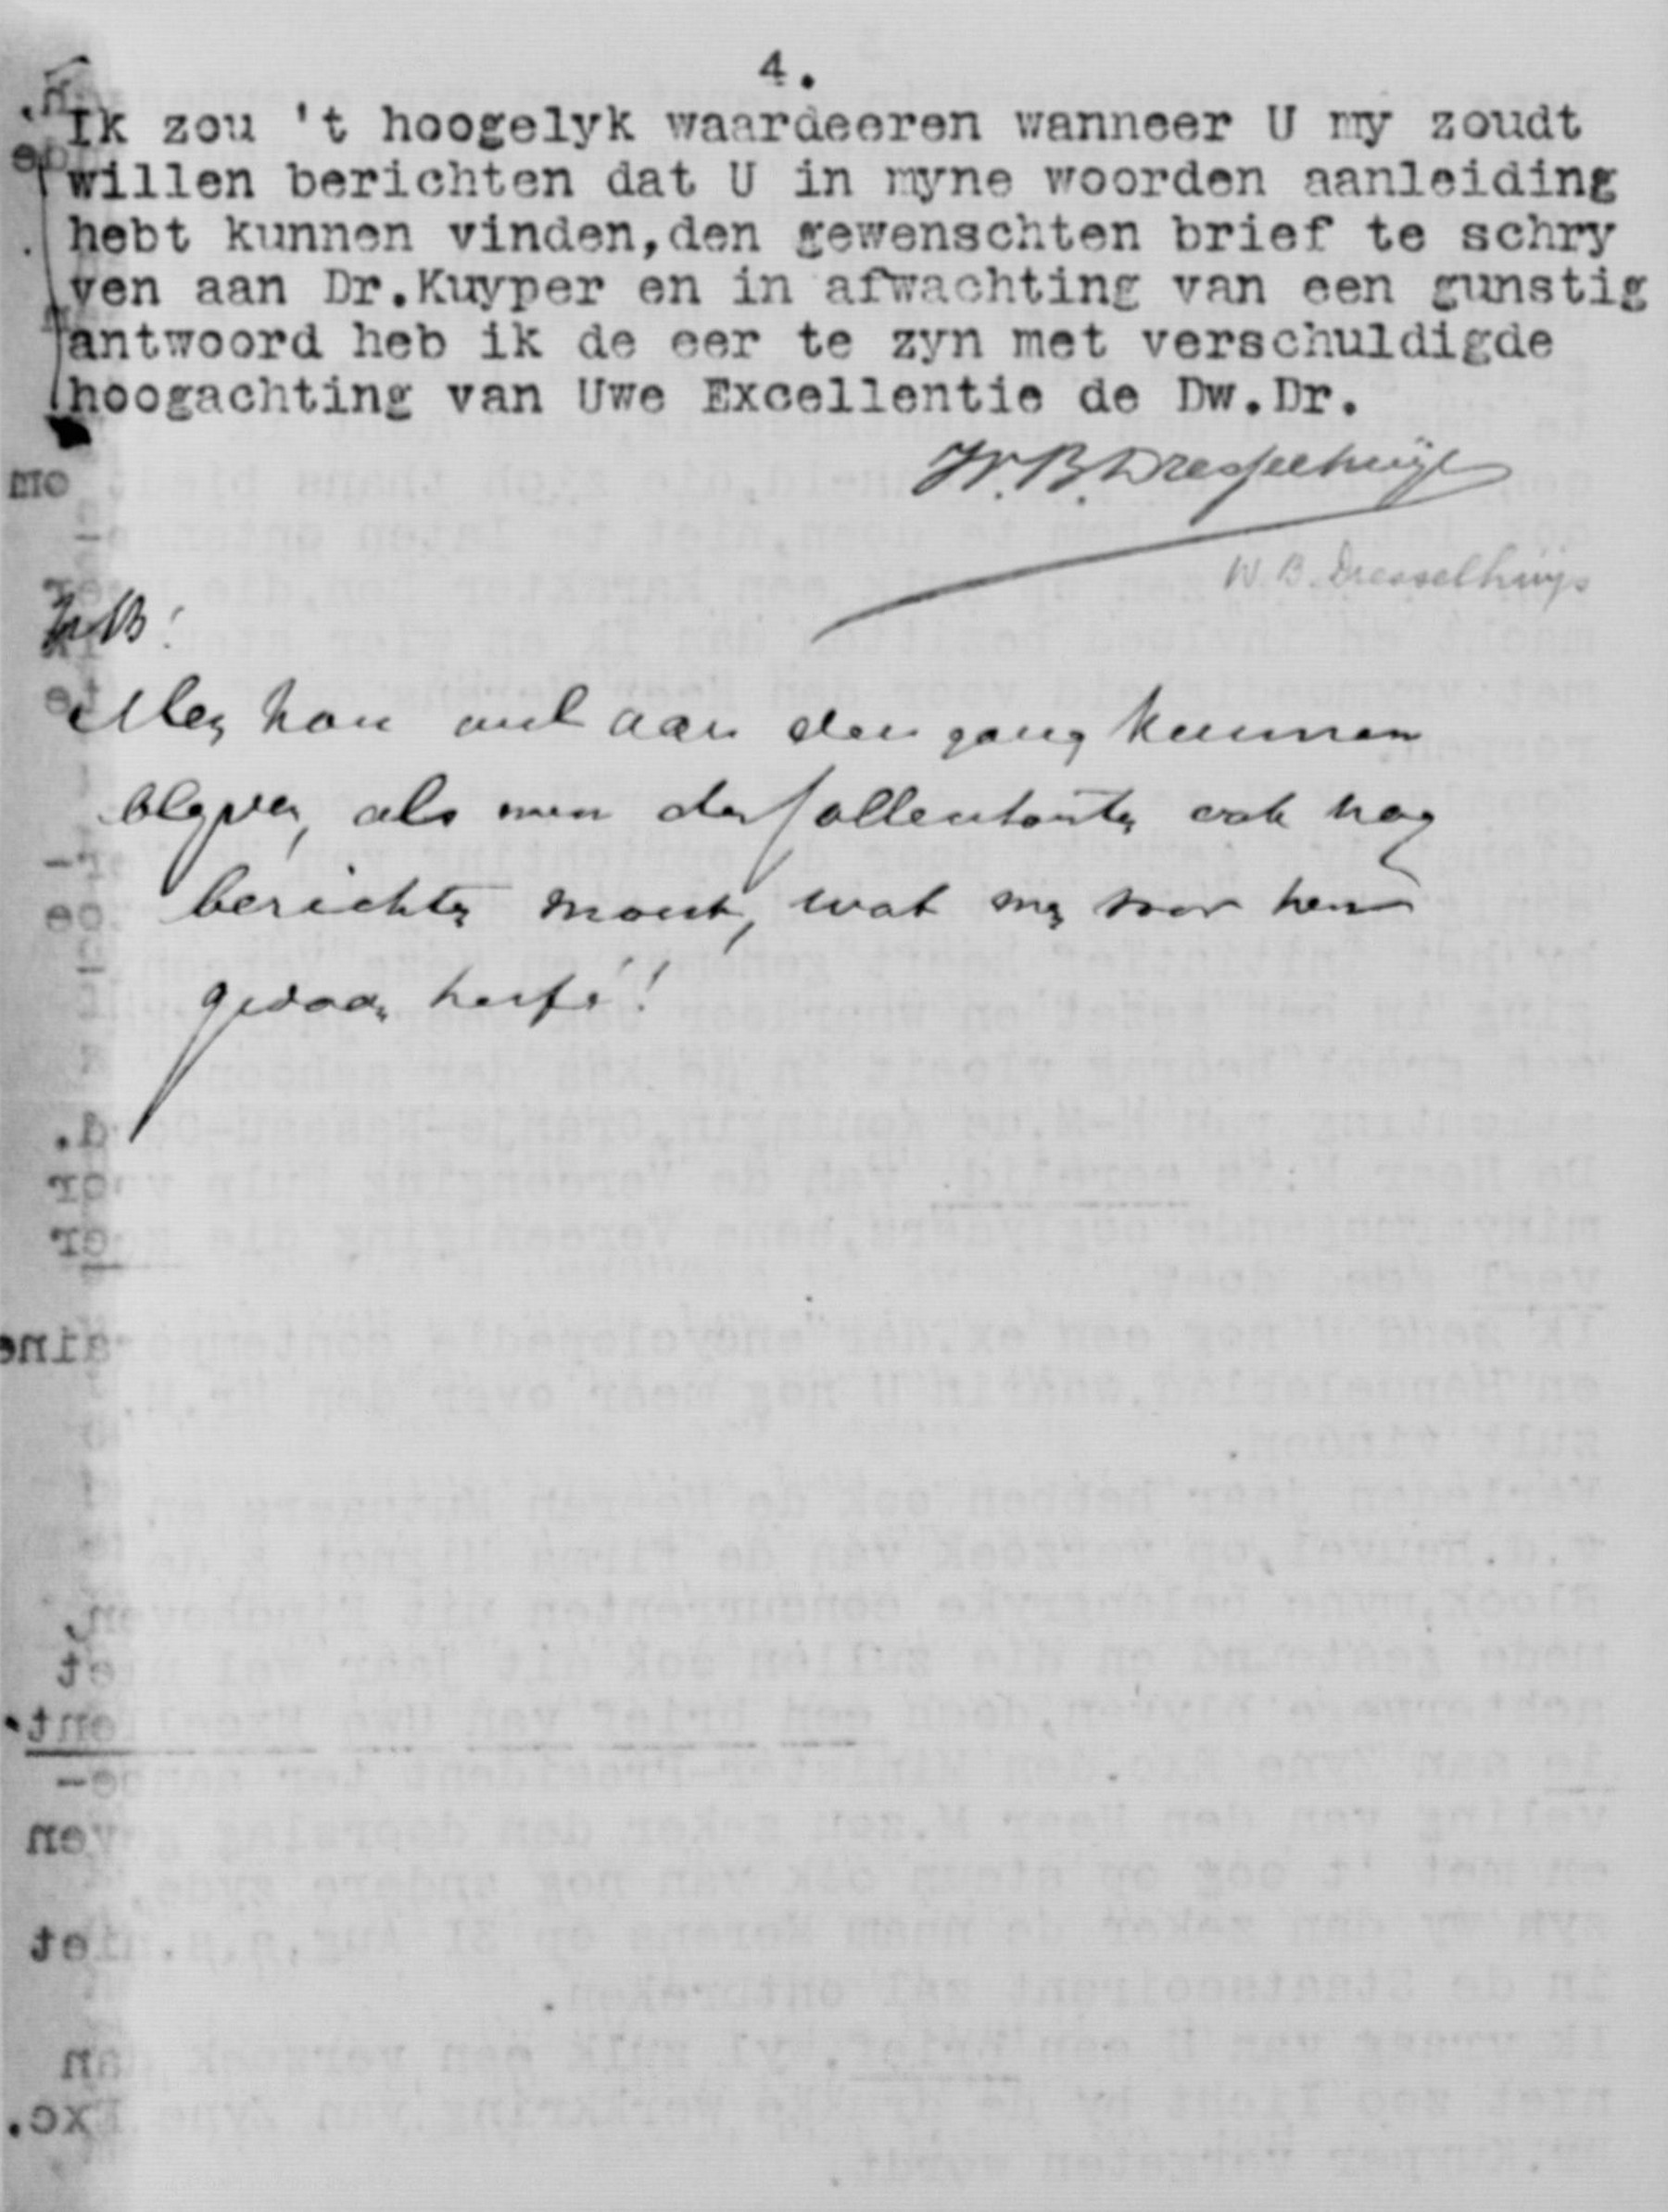 4.
Ik zou 't hoogelyk waardeeren wanneer U my zoudt
willen berichten dat U in myne woorden aanleiding
hebt kunnen vinden,den gewenschten brief te schry
ven aan Dr.Kuyper en in afwachting van een gunstig
antwoord heb ik de eer te zyn met verschuldigde
hoogachting van Uwe Excellentie de Dw.Dr.
W.B.Dresselhuys
W.B. Dresselhuys
NB!
Men kon wel aan den gang kunnen
blyven, als men den sollicitanten ook nog
berichten moest, wat men voor hem
gedaan heeft!